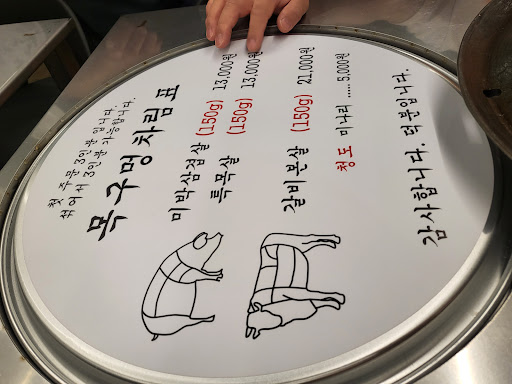 첫 주문 3인분 입니다.
섞어서 3인분 가능합니다.
목구멍 차림표
미박삼겹살 (150g) 13,000원
특목살 (150g) 13,000원
갈비본살 (150g) 21,000원
청도 미나리 ..... 5,000원
감사합니다. 덕분입니다.